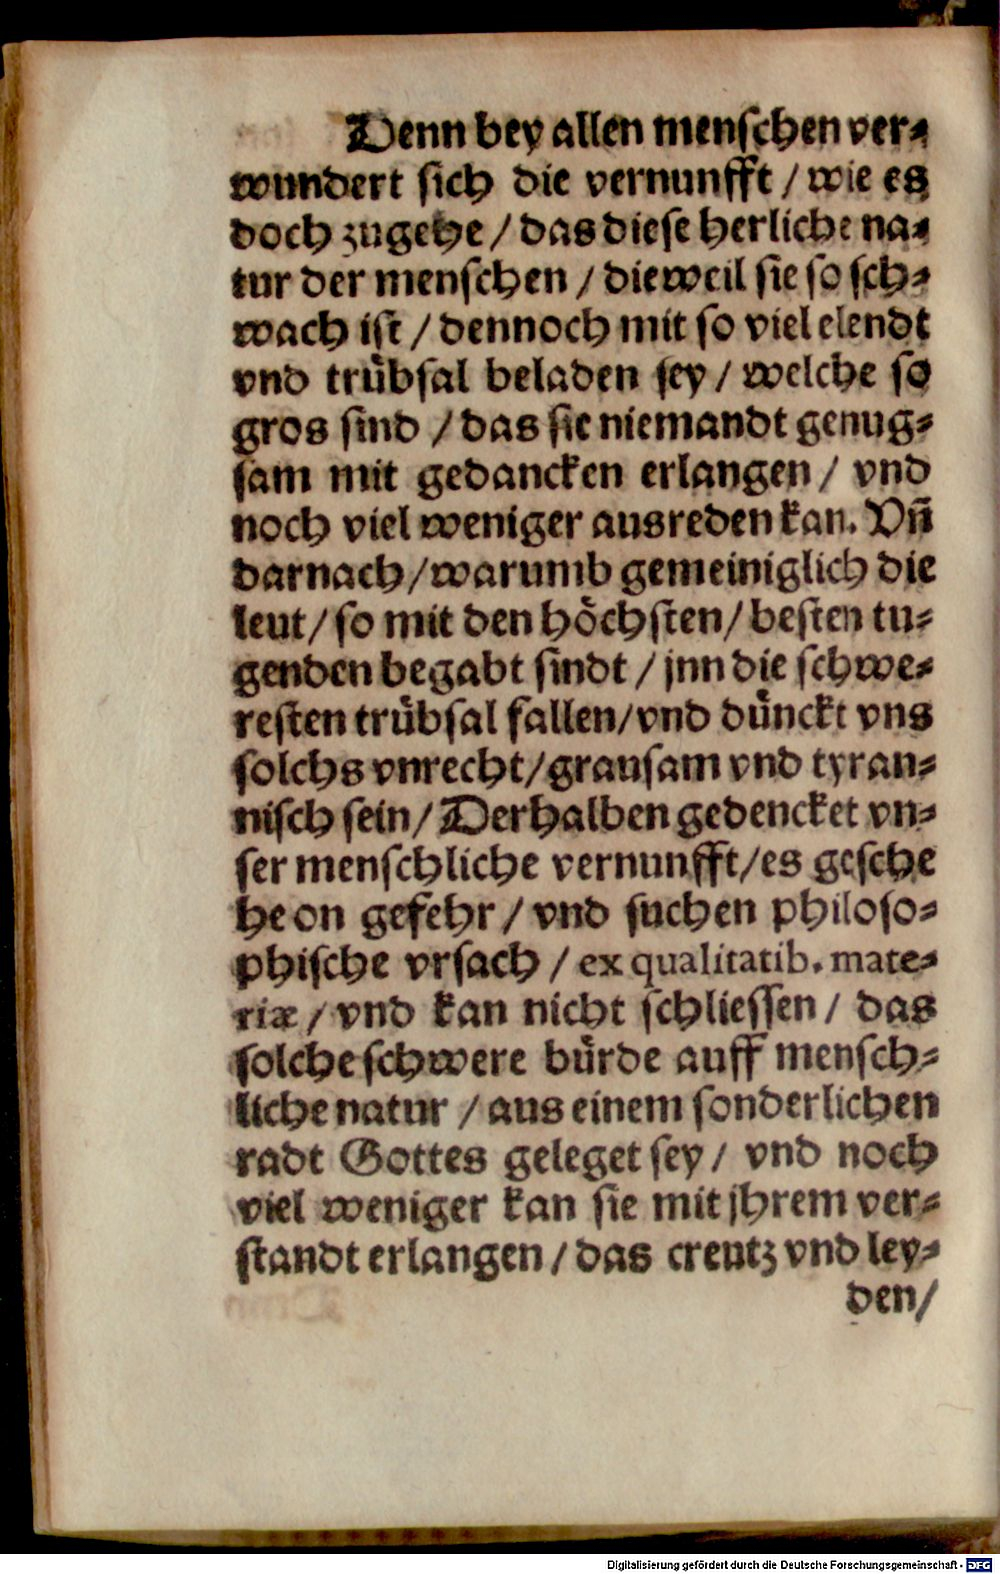 Denn bey allen menschen ver⸗
wundert sich die vernunfft / wie es
doch zugehe / das diese herliche na⸗
tur der menschen / dieweil sie so sch⸗
wach ist / dennoch mit so viel elendt
vnd trübsal beladen sey / welche so
gros sind / das sie niemandt genug⸗
sam mit gedancken erlangen / vnd
noch viel weniger ausreden kan. Vñ
darnach / warumb gemeiniglich die
leut / so mit den höchsten / besten tu⸗
genden begabt sindt / jnn die schwe⸗
resten trübsal fallen / vnd dünckt vns
solchs vnrecht / grausam vnd tyran⸗
nisch sein / Derhalben gedencket vn⸗
ser menschliche vernunfft / es gesche
he on gefehr / vnd suchen philoso⸗
phische vrsach / ex qualitatib. mate⸗
riæ / vnd kan nicht schliessen / das
solche schwere bürde auff mensch⸗
liche natur / aus einem sonderlichen
radt Gottes geleget sey / vnd noch
viel weniger kan sie mit jhrem ver⸗
standt erlangen / das creutz vnd ley⸗
den /
Digitalisierung gefördert durch die Deutsche Forschungsgemeinschaft - DFG